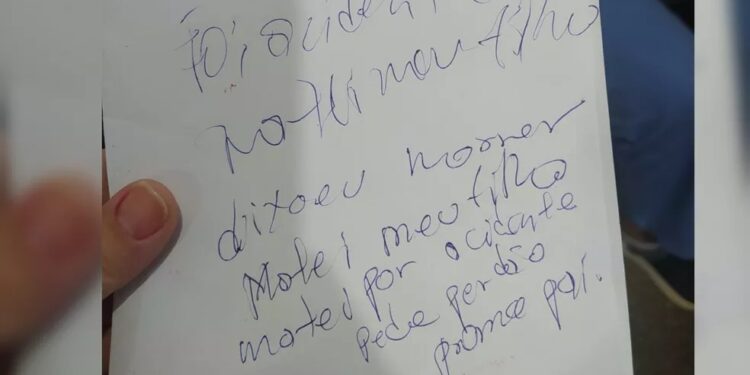 Foi aciden
matei meu filho
dixaeu morrer
Matei meu filho
matei por acidente
pede perdão
prome pai.